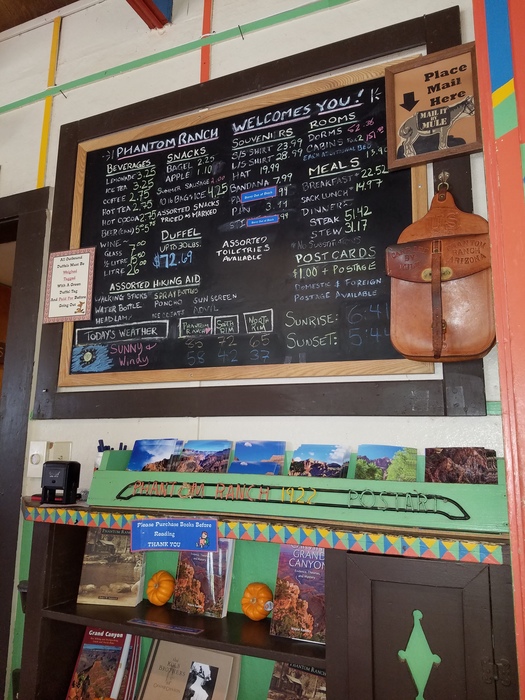 PHANTOM RANCH WELCOMES YOU!
BEVERAGES
LEMONADE 3.25
ICE TEA 3.25
COFFEE 2.75
HOT TEA 2.75
HOT COCOA 2.75
WINE
GLASS 7.00
½ LITRE
LITRE 26
SNACKS
BAGEL 2.25
APPLE 1.10
SUMMER SAUSAGE
10 lb BAG ICE 4.25
ASSORTED SNACKS
PRICED AS MARKED
DUFFEL
UP TO 30LBS.
$72.69
SOUVENIRS
S/S SHIRT 23.99
L/S SHIRT 28.99
HAT 19.99
BANDANA 7.99
PIN 3.
ASSORTED
TOILETRIES
AVAILABLE
ROOMS
DORMS
CABINS
EACH ADDITIONAL
MEALS
BREAKFAST 22.52
SACK LUNCH 14.97
DINNER:
STEAK 51.42
STEW 31.17
POSTCARDS
$1.00 + POSTAGE
DOMESTIC & FOREIGN
POSTAGE AVAILABLE
ASSORTED HIKING AID
WALKING STICKS
WATER BOTTLE
HEADLAMP
SPRAY BOTTLE
PONCHO
SUN SCREEN
ADVIL
TODAY'S WEATHER
PHANTOM RANCH
SOUTH RIM
NORTH RIM
SUNNY &
Windy
72 65
58 42 37
SUNRISE: 6:41
SUNSET: 5:44
Place
Mail
Here
MAIL IT
BY MULE
All Outbound
Duffels Must Be
Weighed
Tagged
With A Green
Duffel Tag
And Paid For Before
Going Out
PHANTOM RANCH 1922 POSTART
Please Purchase Books Before
Reading
THANK YOU
PHANTOM RANCH
GRAND
CANYON
Grand Canyon